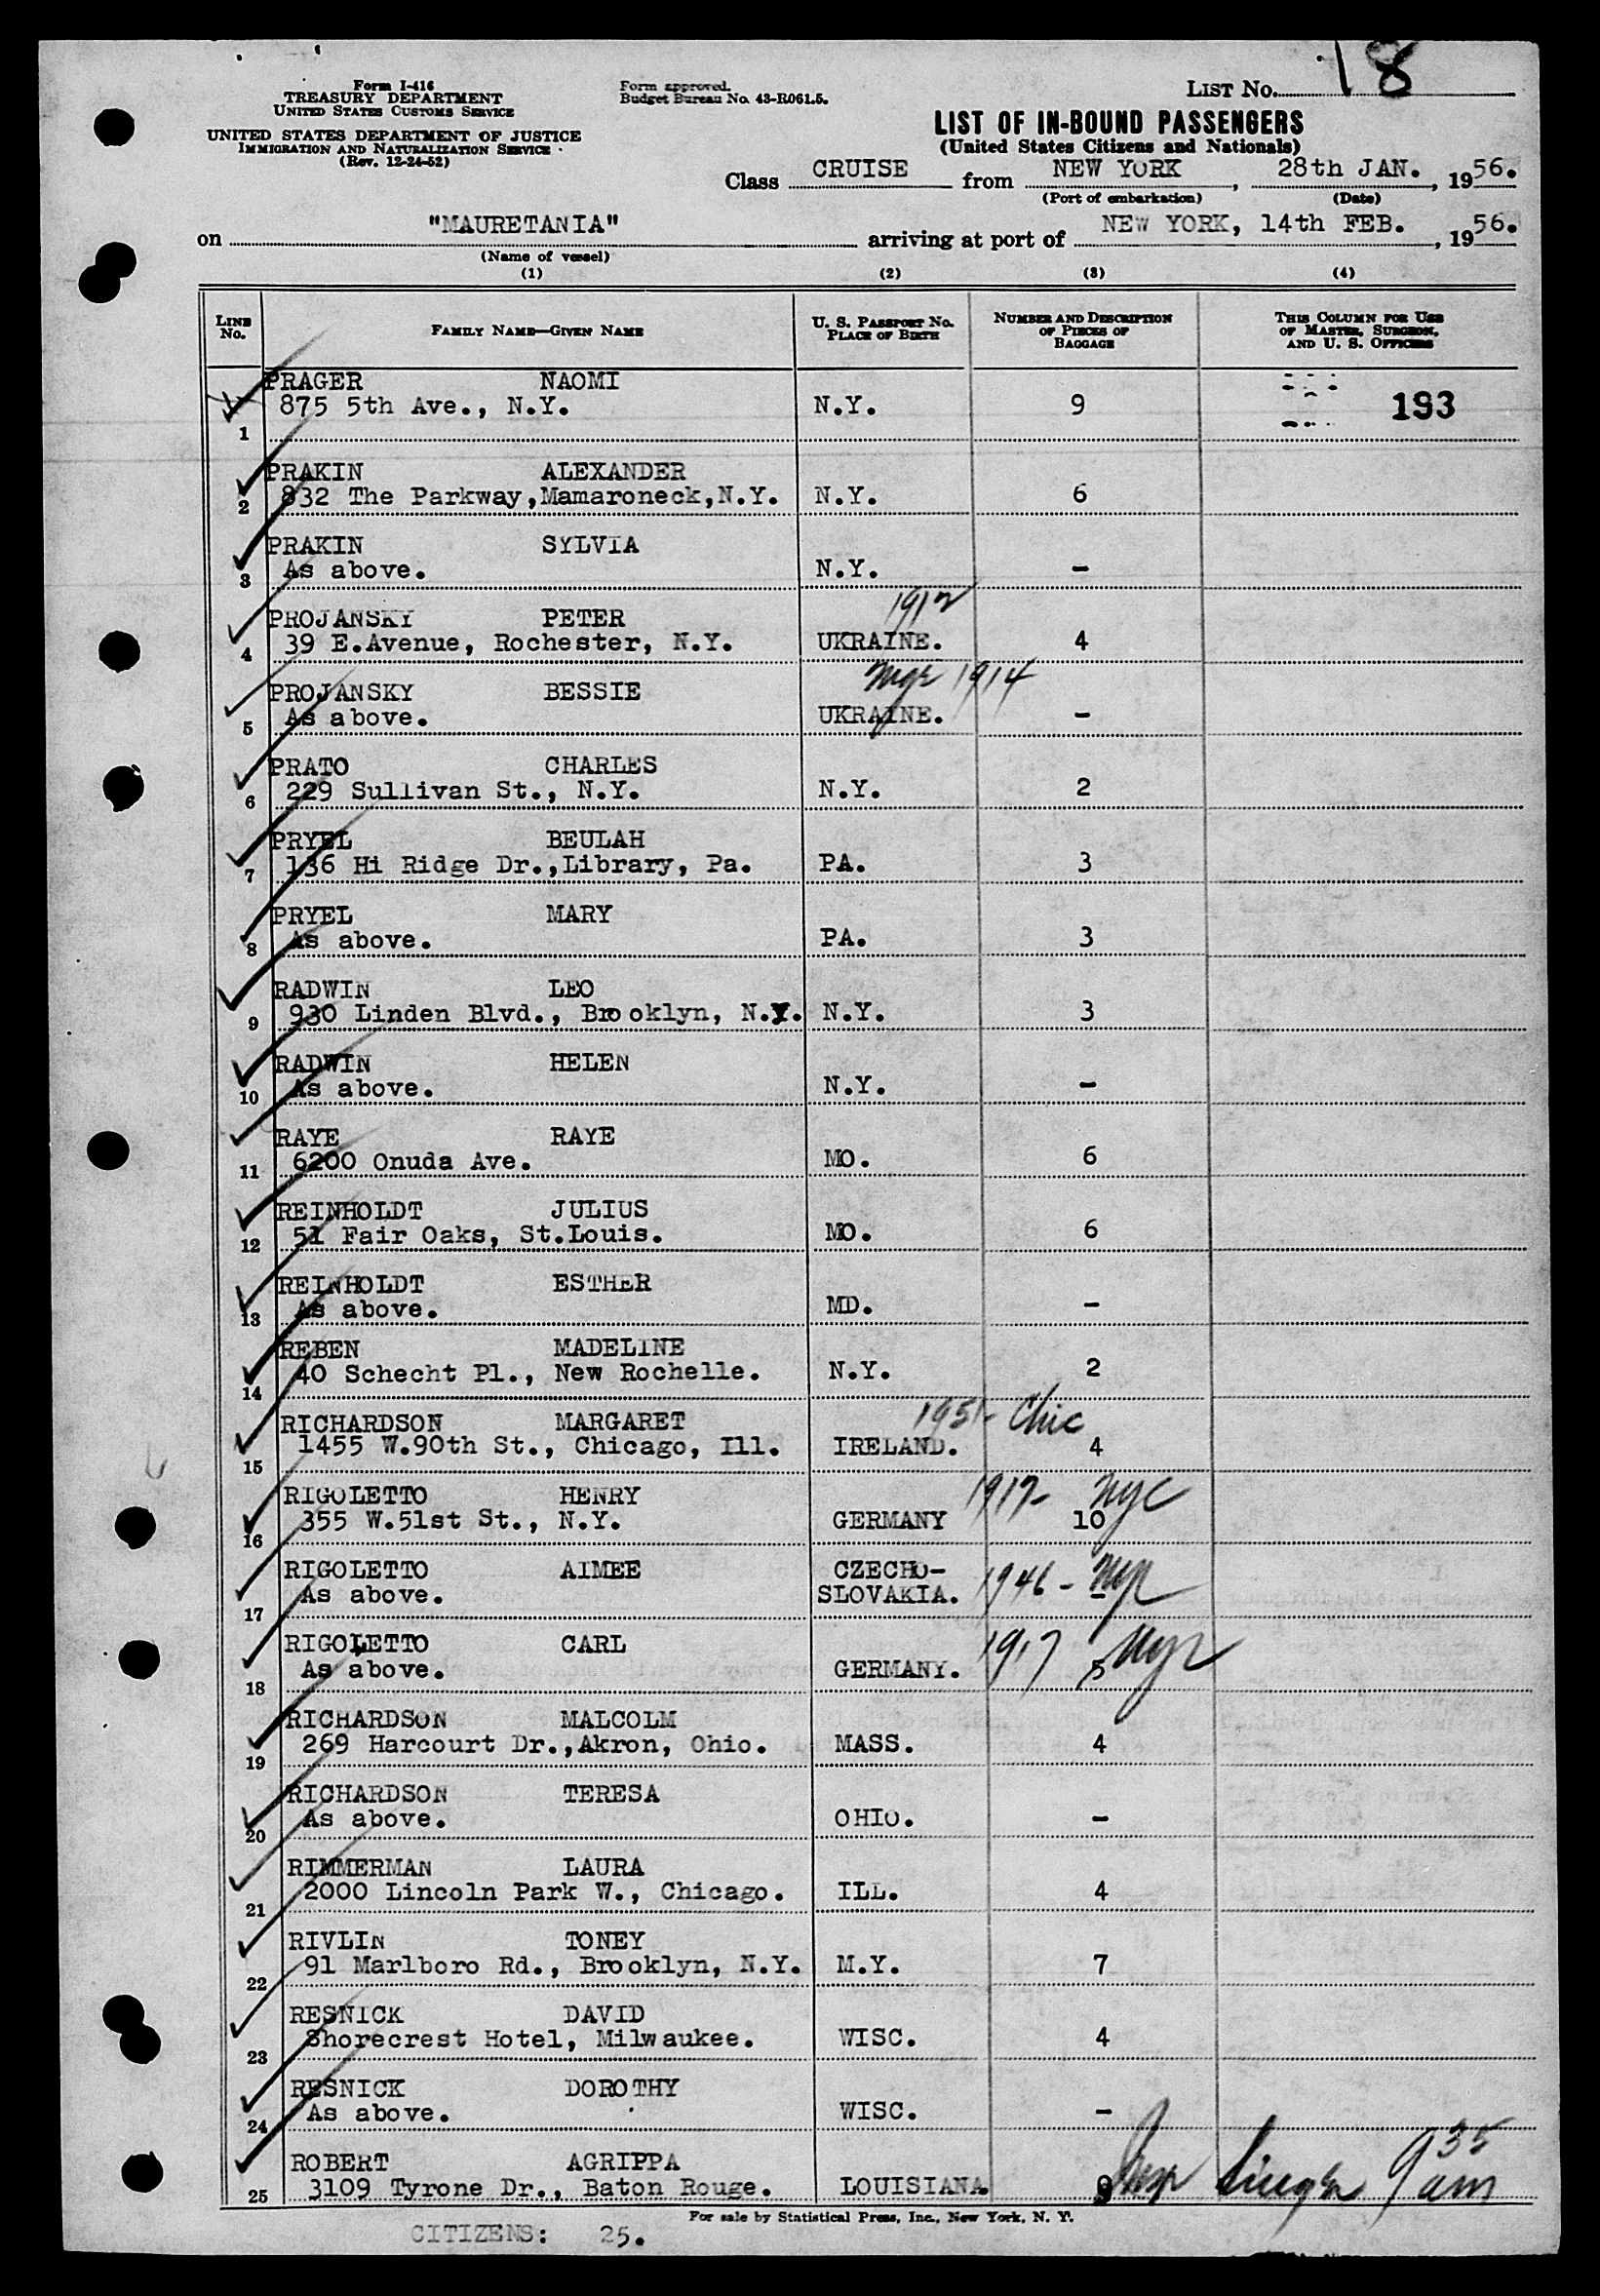 Form I-416
TREASURY DEPARTMENT
UNITED STATES CUSTOMS SERVICE
UNITED STATES DEPARTMENT OF JUSTICE
IMMIGRATION AND NATURALIZATION SERVICE
(Rev. 12-24-52)
Form approved.
Budget Bureau No. 43-R061.5.
LIST No. 18
LIST OF IN-BOUND PASSENGERS
(United States Citizens and Nationals)
Class CRUISE from NEW YORK, 28th JAN., 1956.
(Port of embarkation) (Date)
on "MAURETANIA" arriving at port of NEW YORK, 14th FEB., 1956.
(Name of vessel)
(1) (2) (3) (4)
LINE No. FAMILY NAME—GIVEN NAME U. S. PASSPORT No. PLACE OF BIRTH NUMBER AND DESCRIPTION OF PIECES OF BAGGAGE THIS COLUMN FOR USE OF MASTER, SURGEON, AND U. S. OFFICERS
PRAGER NAOMI
875 5th Ave., N.Y. N.Y. 9 193
1
PRAKIN ALEXANDER
2 832 The Parkway,Mamaroneck,N.Y. N.Y. 6
PRAKIN SYLVIA
3 As above. N.Y. -
1912
PROJANSKY PETER
4 39 E.Avenue, Rochester, N.Y. UKRAINE. 4
1914
PROJANSKY BESSIE
5 As above. UKRAINE. -
PRATO CHARLES
6 229 Sullivan St., N.Y. N.Y. 2
PRYEL BEULAH
7 136 Hi Ridge Dr.,Library, Pa. PA. 3
PRYEL MARY
8 As above. PA. 3
RADWIN LEO
9 930 Linden Blvd., Brooklyn, N.Y. N.Y. 3
RADWIN HELEN
10 As above. N.Y. -
RAYE RAYE
11 6200 Onuda Ave. MO. 6
REINHOLDT JULIUS
12 51 Fair Oaks, St.Louis. MO. 6
REINHOLDT ESTHER
13 As above. MD. -
REBEN MADELINE
14 40 Schecht Pl., New Rochelle. N.Y. 2
1951- Chic
RICHARDSON MARGARET
15 1455 W.90th St., Chicago, Ill. IRELAND. 4
1917- NYC
RIGOLETTO HENRY
16 355 W.51st St., N.Y. GERMANY 10
RIGOLETTO AIMEE CZECHO-
17 As above. SLOVAKIA. 1946- -
RIGOLETTO CARL 1917
18 As above. GERMANY. 5
RICHARDSON MALCOLM
19 269 Harcourt Dr.,Akron, Ohio. MASS. 4
RICHARDSON TERESA
20 As above. OHIO. -
RIMMERMAN LAURA
21 2000 Lincoln Park W., Chicago. ILL. 4
RIVLIN TONEY
22 91 Marlboro Rd., Brooklyn, N.Y. M.Y. 7
RESNICK DAVID
23 Shorecrest Hotel, Milwaukee. WISC. 4
RESNICK DOROTHY
24 As above. WISC. -
ROBERT AGRIPPA
25 3109 Tyrone Dr., Baton Rouge. LOUISIANA. 9 935 am
For sale by Statistical Press, Inc., New York, N. Y.
CITIZENS: 25.